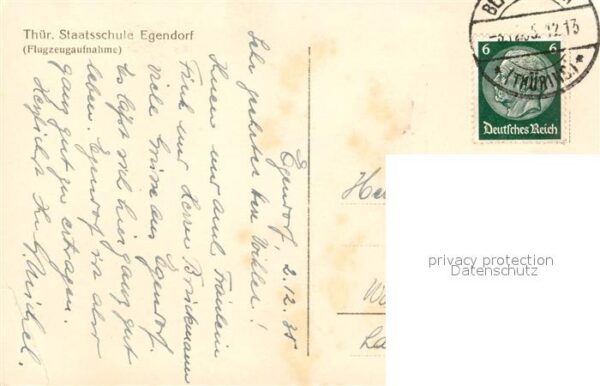 Thür. Staatsschule Egendorf
(Flugzeugaufnahme)
Egendorf, 2.12.35
Sehr geehrter Herr
Ihnen und Fräulein
und Herrn Brinkmann
Viele Grüsse aus Egendorf.
Es läßt sich hier ganz gut
leben. Egendorf ist aber
ganz gut zu ertragen.
Herzlichst Ihr
12.13
(THÜRING)
6 6
Deutsches Reich
He
W
La
privacy protection
Datenschutz